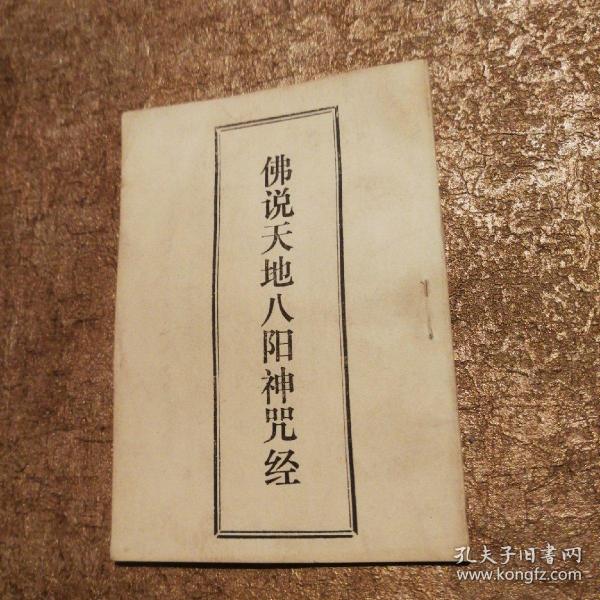 佛说天地八阳神咒经
孔夫子旧書网
www.kongfz.com